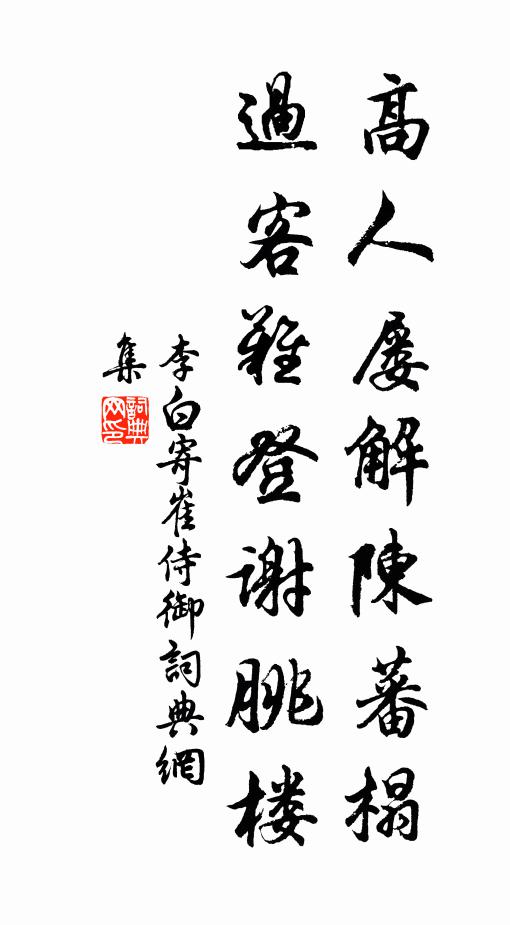 高人屡解陳蕃榻
過客難登谢脁楼
李白寄崔侍御詞典網
集
詞典
网印